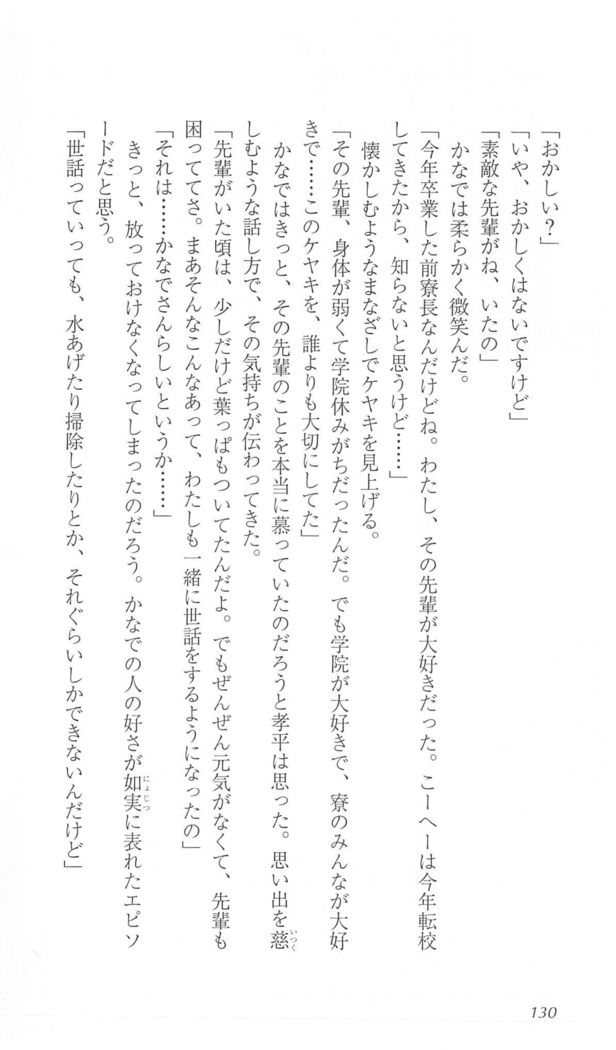 「おかしい？」
「いや、おかしくはないですけど」
「素敵な先輩がね、いたの」
　かなでは柔らかく微笑んだ。
「今年卒業した前寮長なんだけどね。わたし、その先輩が大好きだった。こーへーは今年転校
してきたから、知らないと思うけど……」
　懐かしむようなまなざしでケヤキを見上げる。
「その先輩、身体が弱くて学院休みがちだったんだ。でも学院が大好きで、寮のみんなが大好
きで……このケヤキを、誰よりも大切にしてた」
　かなではきっと、その先輩のことを本当に慕っていたのだろうと孝平は思った。思い出を慈いつく
しむような話し方で、その気持ちが伝わってきた。
「先輩がいた頃は、少しだけど葉っぱもついてたんだよ。でもぜんぜん元気がなくて、先輩も
困っててさ。まあそんなこんなあって、わたしも一緒に世話をするようになったの」
「それは……かなでさんらしいというか……」
　きっと、放っておけなくなってしまったのだろう。かなでの人の好さが如実にょじつに表れたエピソ
ードだと思う。
「世話っていっても、水あげたり掃除したりとか、それぐらいしかできないんだけど」
130